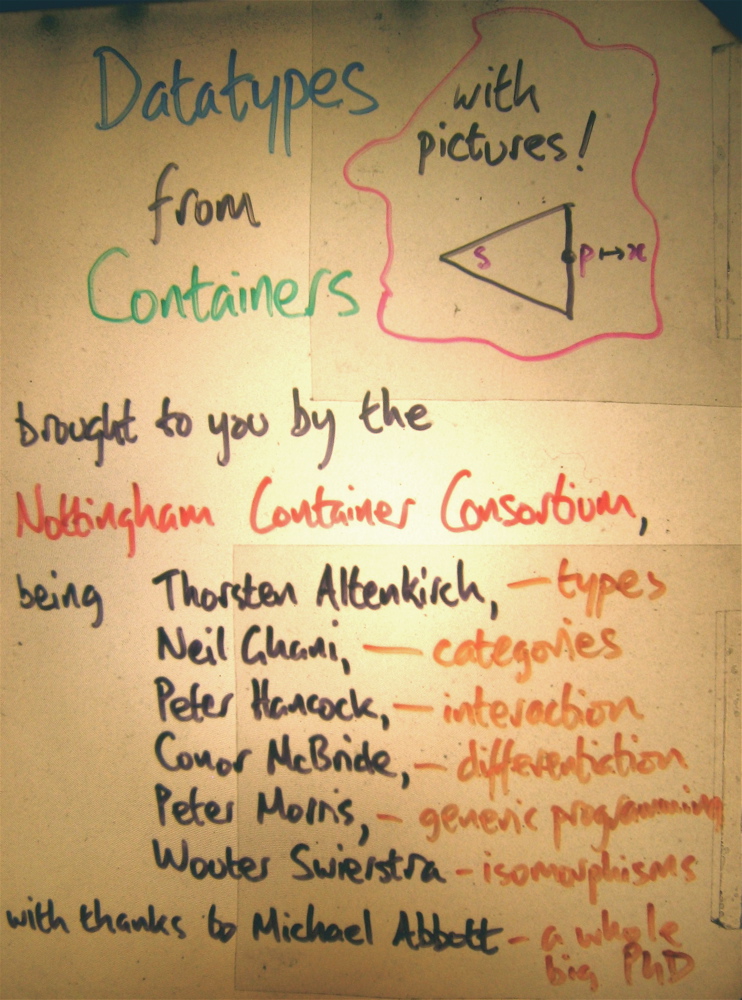 Datatypes
from
Containers
with
pictures!
s p ↦ x
brought to you by the
Nottingham Container Consortium,
being Thorsten Altenkirch, — types
Neil Ghani, — categories
Peter Hancock, — interaction
Conor McBride, — differentiation
Peter Morris, — generic programming
Wouter Swierstra — isomorphisms
with thanks to Michael Abbott — a whole
big PhD